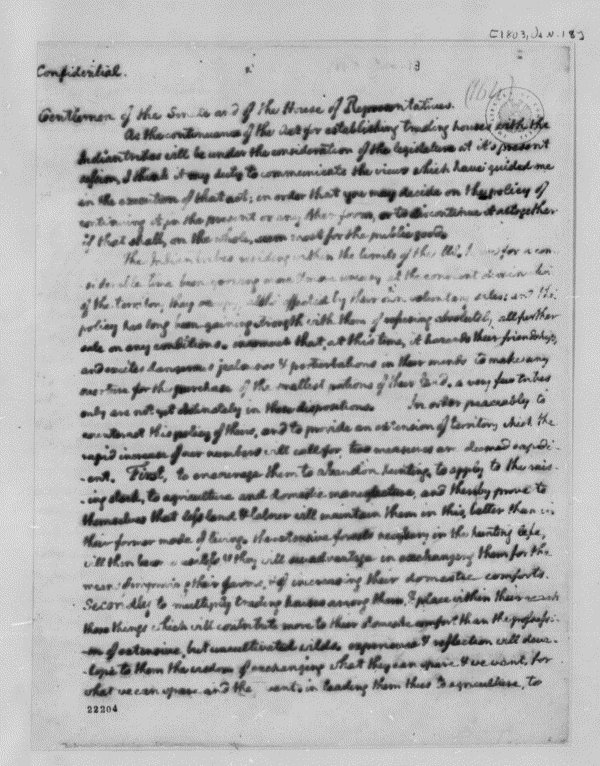 [1803, Jan. 18]
Confidential.
Gentlemen of the Senate and of the House of Representatives.
As the continuance of the Act for establishing trading houses with the
Indian tribes will be under the consideration of the legislature at it's present
session, I think it my duty to communicate the views which have guided me
in the execution of that act; in order that you may decide on the policy of
continuing it, in the present or any other form, or to discontinue it altogether
if that shall, on the whole, seem most for the public good.
The Indian tribes residing within the limits of the US. have for a con-
-siderable time been growing more & more uneasy at the constant diminution
of the territory they occupy, altho' effected by their own voluntary sales: and the
policy has long been gaining strength with them of refusing absolutely all further
sale on any conditions. insomuch that, at this time, it hazards their friendship,
and excites dangerous jealousies & perturbations in their minds to make any
overture for the purchase of the smallest portions of their land. a very few tribes
only are not yet obstinately in these dispositions. In order peaceably to
counteract this policy of theirs, and to provide an extension of territory which the
rapid increase of our numbers will call for, two measures are deemed expedi-
-ent. First, to encourage them to abandon hunting, to apply to the rais-
-ing stock, to agriculture and domestic manufacture, and thereby prove to
themselves that less land & labour will maintain them in this, better than in
their former mode of living. the extensive forests necessary in the hunting life,
will then become useless, & they will see advantage in exchanging them for the
means of improving their farms, & of increasing their domestic comforts.
Secondly to multiply trading houses among them, & place within their reach
those things which will contribute more to their domestic comfort than the possessi-
-on of extensive, but uncultivated wilds. experience & reflection will deve-
-lope to them the wisdom of exchanging what they can spare & we want, for
what we can spare and they want. in leading them thus to agriculture, to
22204